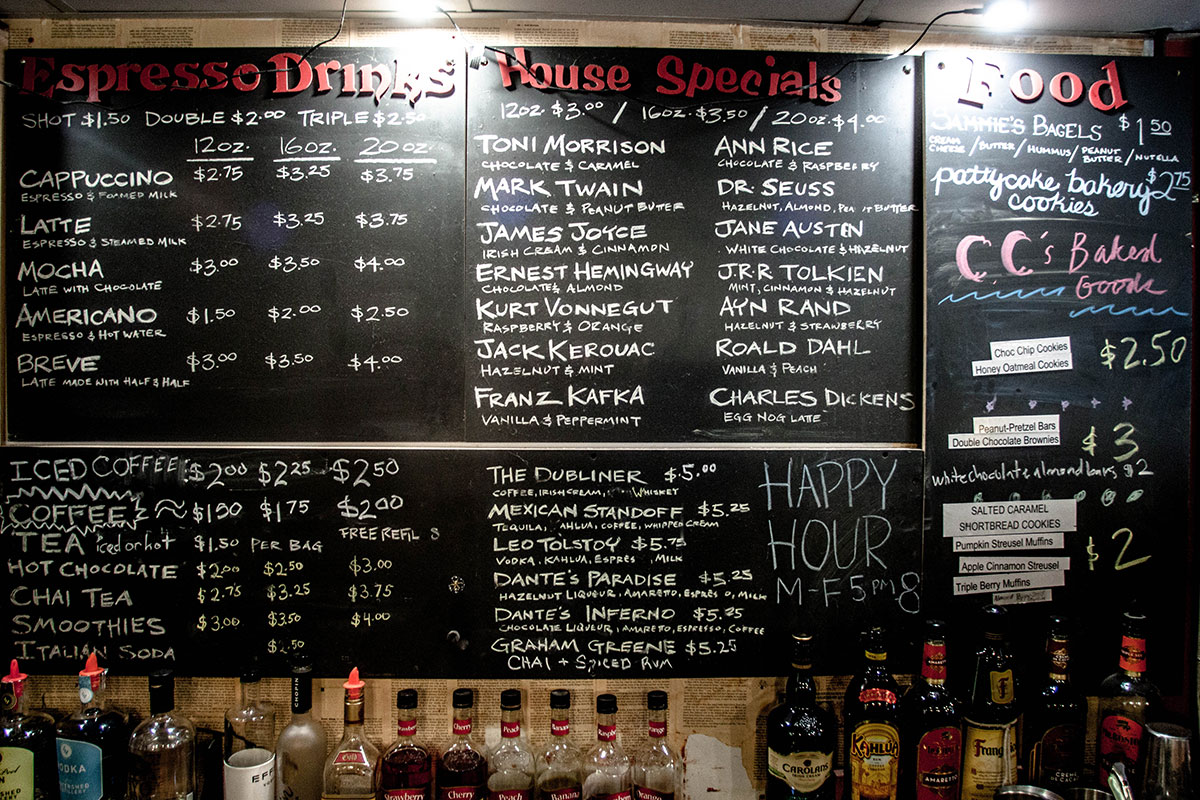 Espresso Drinks
SHOT $1.50 DOUBLE $2.00 TRIPLE $2.50
12oz. 16oz. 20oz.
CAPPUCCINO $2.75 $3.25 $3.75
ESPRESSO & FOAMED MILK
LATTE $2.75 $3.25 $3.75
ESPRESSO & STEAMED MILK
MOCHA $3.00 $3.50 $4.00
LATTE WITH CHOCOLATE
AMERICANO $1.50 $2.00 $2.50
ESPRESSO & HOT WATER
BREVE $3.00 $3.50 $4.00
LATE MADE WITH HALF & HALF
House Specials
12oz. $3.00 / 16oz. $3.50 / 20oz. $4.00
TONI MORRISON
CHOCOLATE & CARAMEL
MARK TWAIN
CHOCOLATE & PEANUT BUTTER
JAMES JOYCE
IRISH CREAM & CINNAMON
ERNEST HEMINGWAY
CHOCOLATE & ALMOND
KURT VONNEGUT
RASPBERRY & ORANGE
JACK KEROUAC
HAZELNUT & MINT
FRANZ KAFKA
VANILLA & PEPPERMINT
ANN RICE
CHOCOLATE & RASPBERRY
DR. SEUSS
HAZELNUT, ALMOND, PEA UT BUTTER
JANE AUSTEN
WHITE CHOCOLATE & HAZELNUT
J.R.R TOLKIEN
MINT, CINNAMON & HAZELNUT
AYN RAND
HAZELNUT & STRAWBERRY
ROALD DAHL
VANILLA & PEACH
CHARLES DICKENS
EGG NOG LATTE
Food
SAMMIE'S BAGELS $1.50
CREAM CHEESE / BUTTER / HUMMUS / PEANUT BUTTER / NUTELLA
pattycake bakery $2.75
cookies
CC's Baked
Goods
Choc Chip Cookies
Honey Oatmeal Cookies
$2.50
Peanut-Pretzel Bars
Double Chocolate Brownies
$3
white chocolate almond bars $2
SALTED CARAMEL
SHORTBREAD COOKIES
Pumpkin Streusel Muffins
Apple Cinnamon Streusel
Triple Berry Muffins
$2
ICED COFFEE $2.00 $2.25 $2.50
COFFEE $1.50 $1.75 $2.00
FREE REFIL S
TEA iced or hot $1.50 PER BAG
HOT CHOCOLATE $2.00 $2.50 $3.00
CHAI TEA $2.75 $3.25 $3.75
SMOOTHIES $3.00 $3.50 $4.00
ITALIAN SODA $2.50
THE DUBLINER $5.00
COFFEE, IRISH CREAM, WHISKEY
MEXICAN STANDOFF $5.25
TEQUILA, AHLUA, COFFEE, WHIPPED CREAM
LEO TOLSTOY $5.75
VODKA, KAHLUA, ESPRES , MILK
DANTE'S PARADISE $5.25
HAZELNUT LIQUEUR, AMARETO, ESPRES O, MILK
DANTE'S INFERNO $5.25
CHOCOLATE LIQUEUR, AMARETO, ESPRESSO, COFFEE
GRAHAM GREENE $5.25
CHAI + SPICED RUM
HAPPY
HOUR
M-F 5PM 8
CHOPIN
VODKA
EFF
Strawberry
Cherry
Peach
Banana
Orange
CAROLANS
KAHLÚA
AMARETTO
Frang